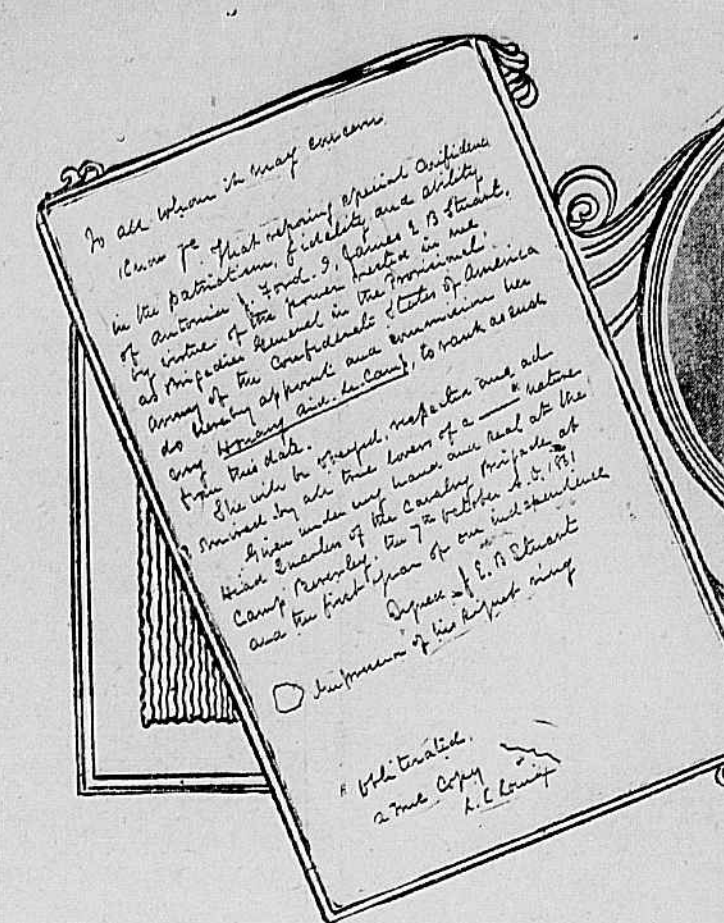 To all whom it may concern
Know Ye. That reposing special Confidence
in the patriotism, fidelity and ability
of Antonier J. Ford. I, James E. B Stuart,
by virtue of the power vested in me
as Brigadier General in the Provisional
Army of the Confederate States of America
do hereby appoint and commission her
my Honary Aid-de-Camp, to rank as such
from this date.
She will be obeyed, respected and ad
mired by all true lovers of a —— * nature
Given under my hand and seal at the
Head Quarters of the Cavalry Brigade, at
Camp Beverley, the 7th October A.D. 1861
and the first year of our independence
Signed J. E. B Stuart
Impression of his signet ring
* obliterated.
a true Copy
L. L.